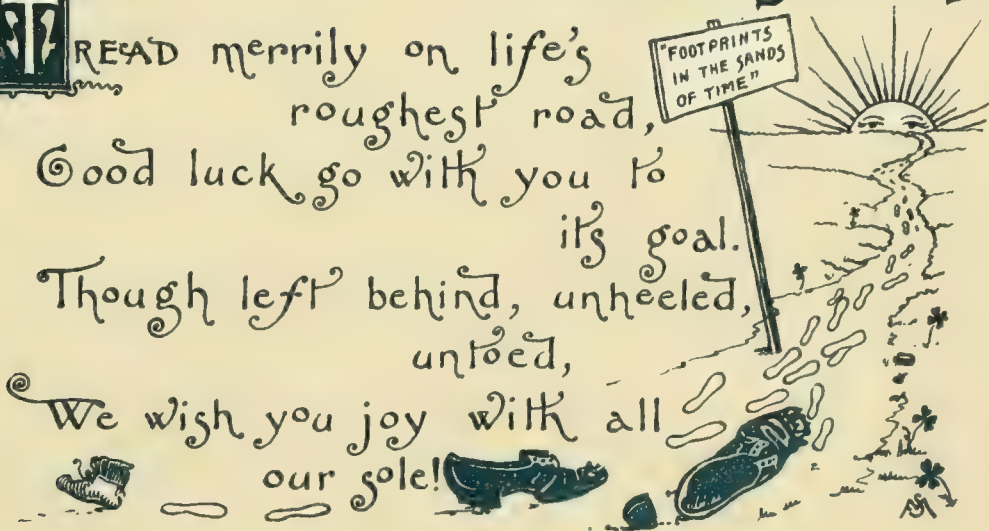 TREAD merrily on life's
roughest road,
Good luck go with you to
its goal.
Though left behind, unheeled,
untoed,
We wish you joy with all
our sole!
"FOOTPRINTS
IN THE SANDS
OF TIME"